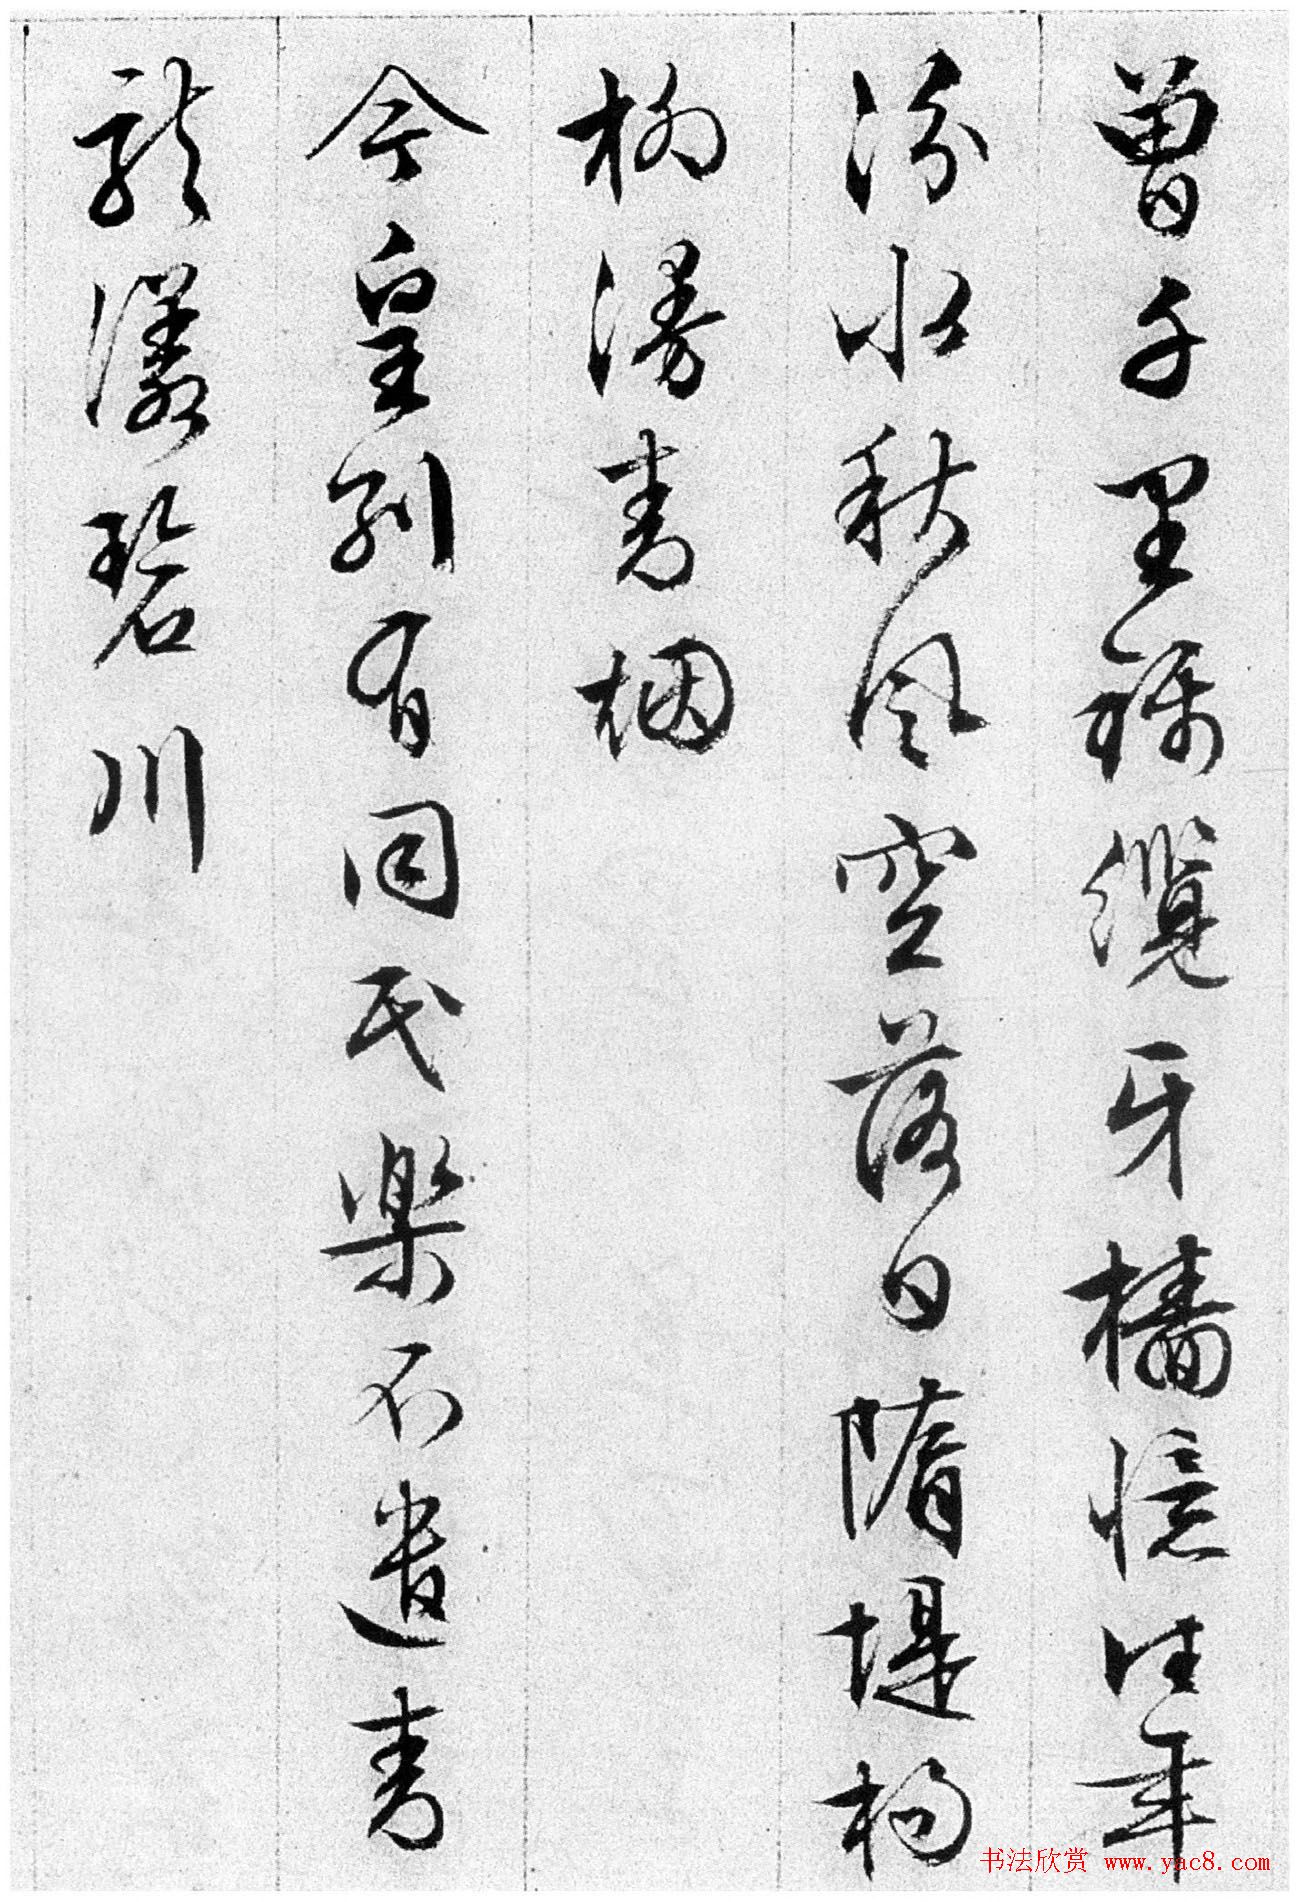 曾千里錦纜牙檣憶往年
汾水秋風空落日隋堤楊
柳漫青烟
今皇別有同民樂不遣青
龍漾碧川
书法欣赏 www.yac8.com